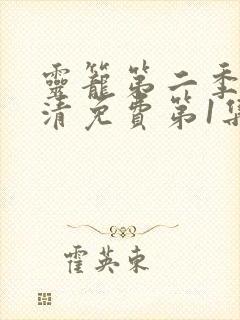 靈籠第二季
清免費第1集
霍英東